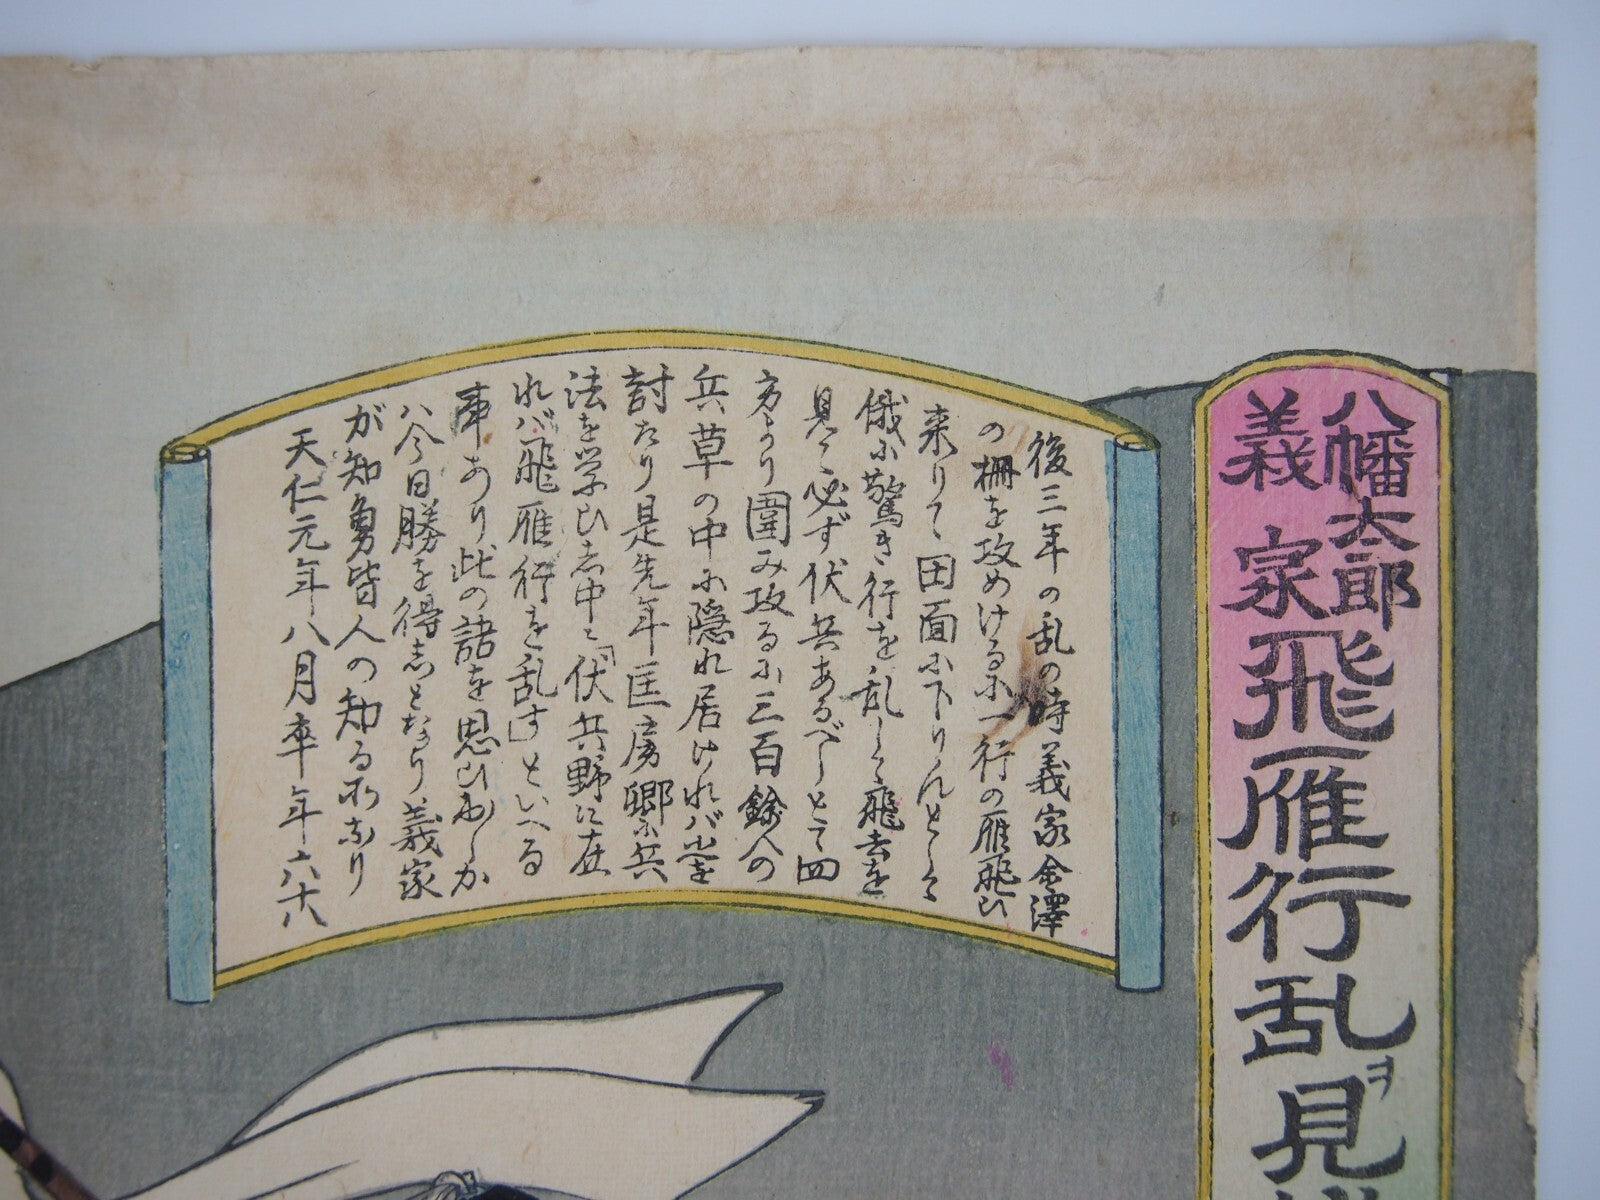 八幡太郎
義家飛雁行乱ヲ見
後三年の乱の時義家金澤
の柵を攻めけるに一行の雁飛ひ
来りて田面に下りんとして
俄に驚き行を乱して飛去を
見て必ず伏兵あるべしとて四
方より圍み攻るに三百餘人の
兵草の中に隠れ居けれバ尽を
討たり是先年匡房卿に兵
法を学ひし中に「伏兵野に在
れバ飛雁行を乱す」といへる
事あり此の語を思ひ出しか
バ今日勝を得しとなり義家
が知勇皆人の知る所なり
天仁元年八月卒年六十八